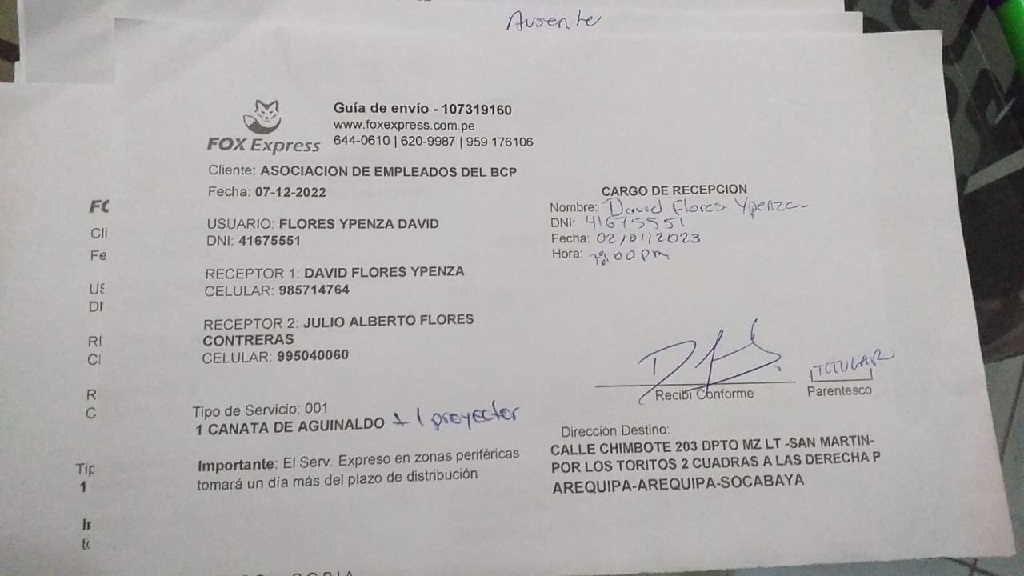 Ausente
Guía de envío - 107319160
www.foxexpress.com.pe
FOX Express
644-0610 | 620-9987 | 959 176106
Cliente: ASOCIACION DE EMPLEADOS DEL BCP
Fecha: 07-12-2022
USUARIO: FLORES YPENZA DAVID
DNI: 41675551
RECEPTOR 1: DAVID FLORES YPENZA
CELULAR: 985714764
RECEPTOR 2: JULIO ALBERTO FLORES
CONTRERAS
CELULAR: 995040060
Tipo de Servicio: 001
1 CANATA DE AGUINALDO + 1 proyector
Importante: El Serv. Expreso en zonas periféricas
tomará un día más del plazo de distribución
CARGO DE RECEPCION
Nombre: David Flores Ypenza
DNI: 41675551
Fecha: 02/01/2023
Hora: :00 pm
TITULAR
Recibi Conforme
Parentesco
Dirección Destino:
CALLE CHIMBOTE 203 DPTO MZ LT -SAN MARTIN-
POR LOS TORITOS 2 CUADRAS A LAS DERECHA P
AREQUIPA-AREQUIPA-SOCABAYA
FO
Cli
Fe
US
DI
RI
CI
R
C
Tip
1